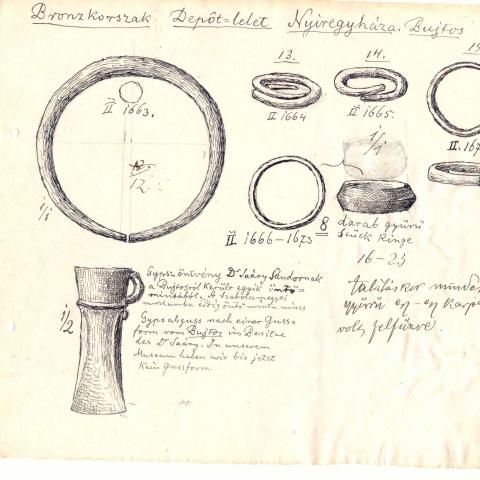 Bronzkorszak Depôt=lelet Nyiregyháza. Bujtos
13.
14.
II 1663.
II 1664
II 1665.
1/1
12.
1/1
II. 1666–1673
8 darab gyűrű
Stück Ringe
16–23
1/2
Gypsz öntvény Dr Saáry Sándornak
a Bujtosról került egyik öntő=
mintából. A Szabolcsmegyei
muzeumba eddig öntőminta nincs
Gypsabguss nach einer Guss-
form vom Bujtos im Besitze
des Dr Saáry. In unserem
Museum haben wir bis jetzt
kein Gussform.
találáskor mindas
gyűrű egy-egy karpe
volt felfűzve.